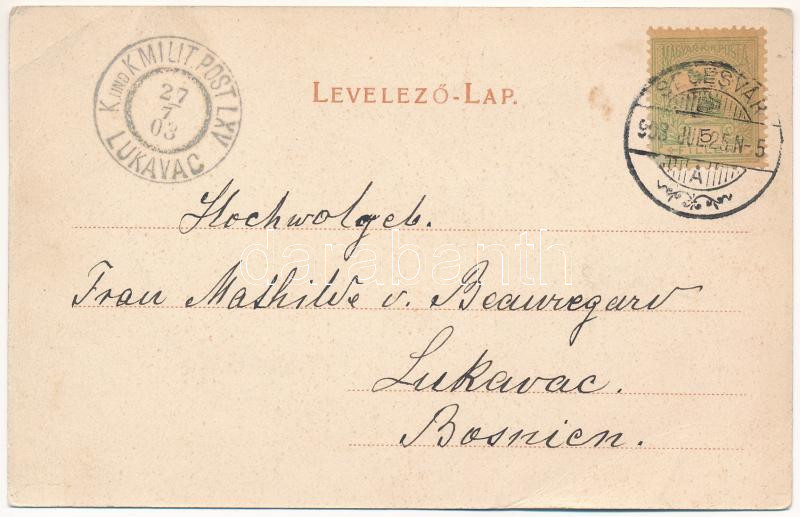 K. UND K MILIT. POST LXV
27
7
03
LUKAVAC
LEVELEZŐ-LAP.
MAGYAR KIR. POSTA
SEGESVÁR
903 JUL 25 N-5
5
A
Hochwolgeb.
Frau Mathilde v. Beauregard
Lukavac.
Bosnien.
darabanth